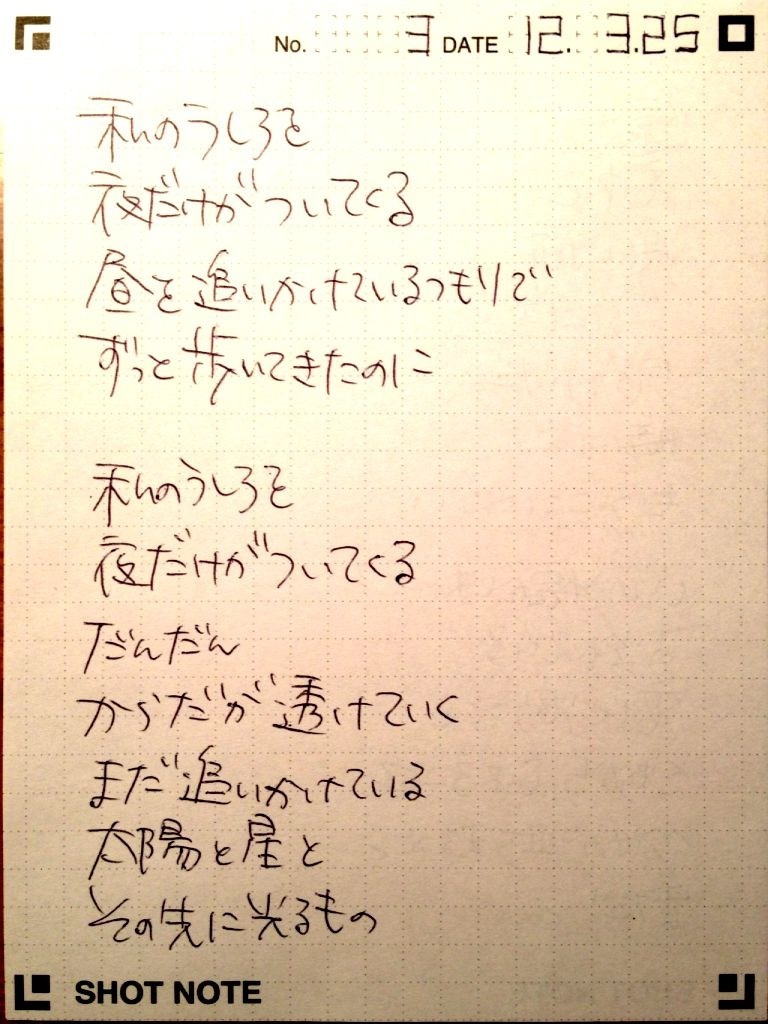 No. 3 DATE 12. 3.25
私のうしろを
夜だけがついてくる
昼を追いかけているつもりで
ずっと歩いてきたのに
私のうしろを
夜だけがついてくる
だんだん
からだが透けていく
まだ追いかけている
太陽と星と
その先に光るもの
SHOT NOTE